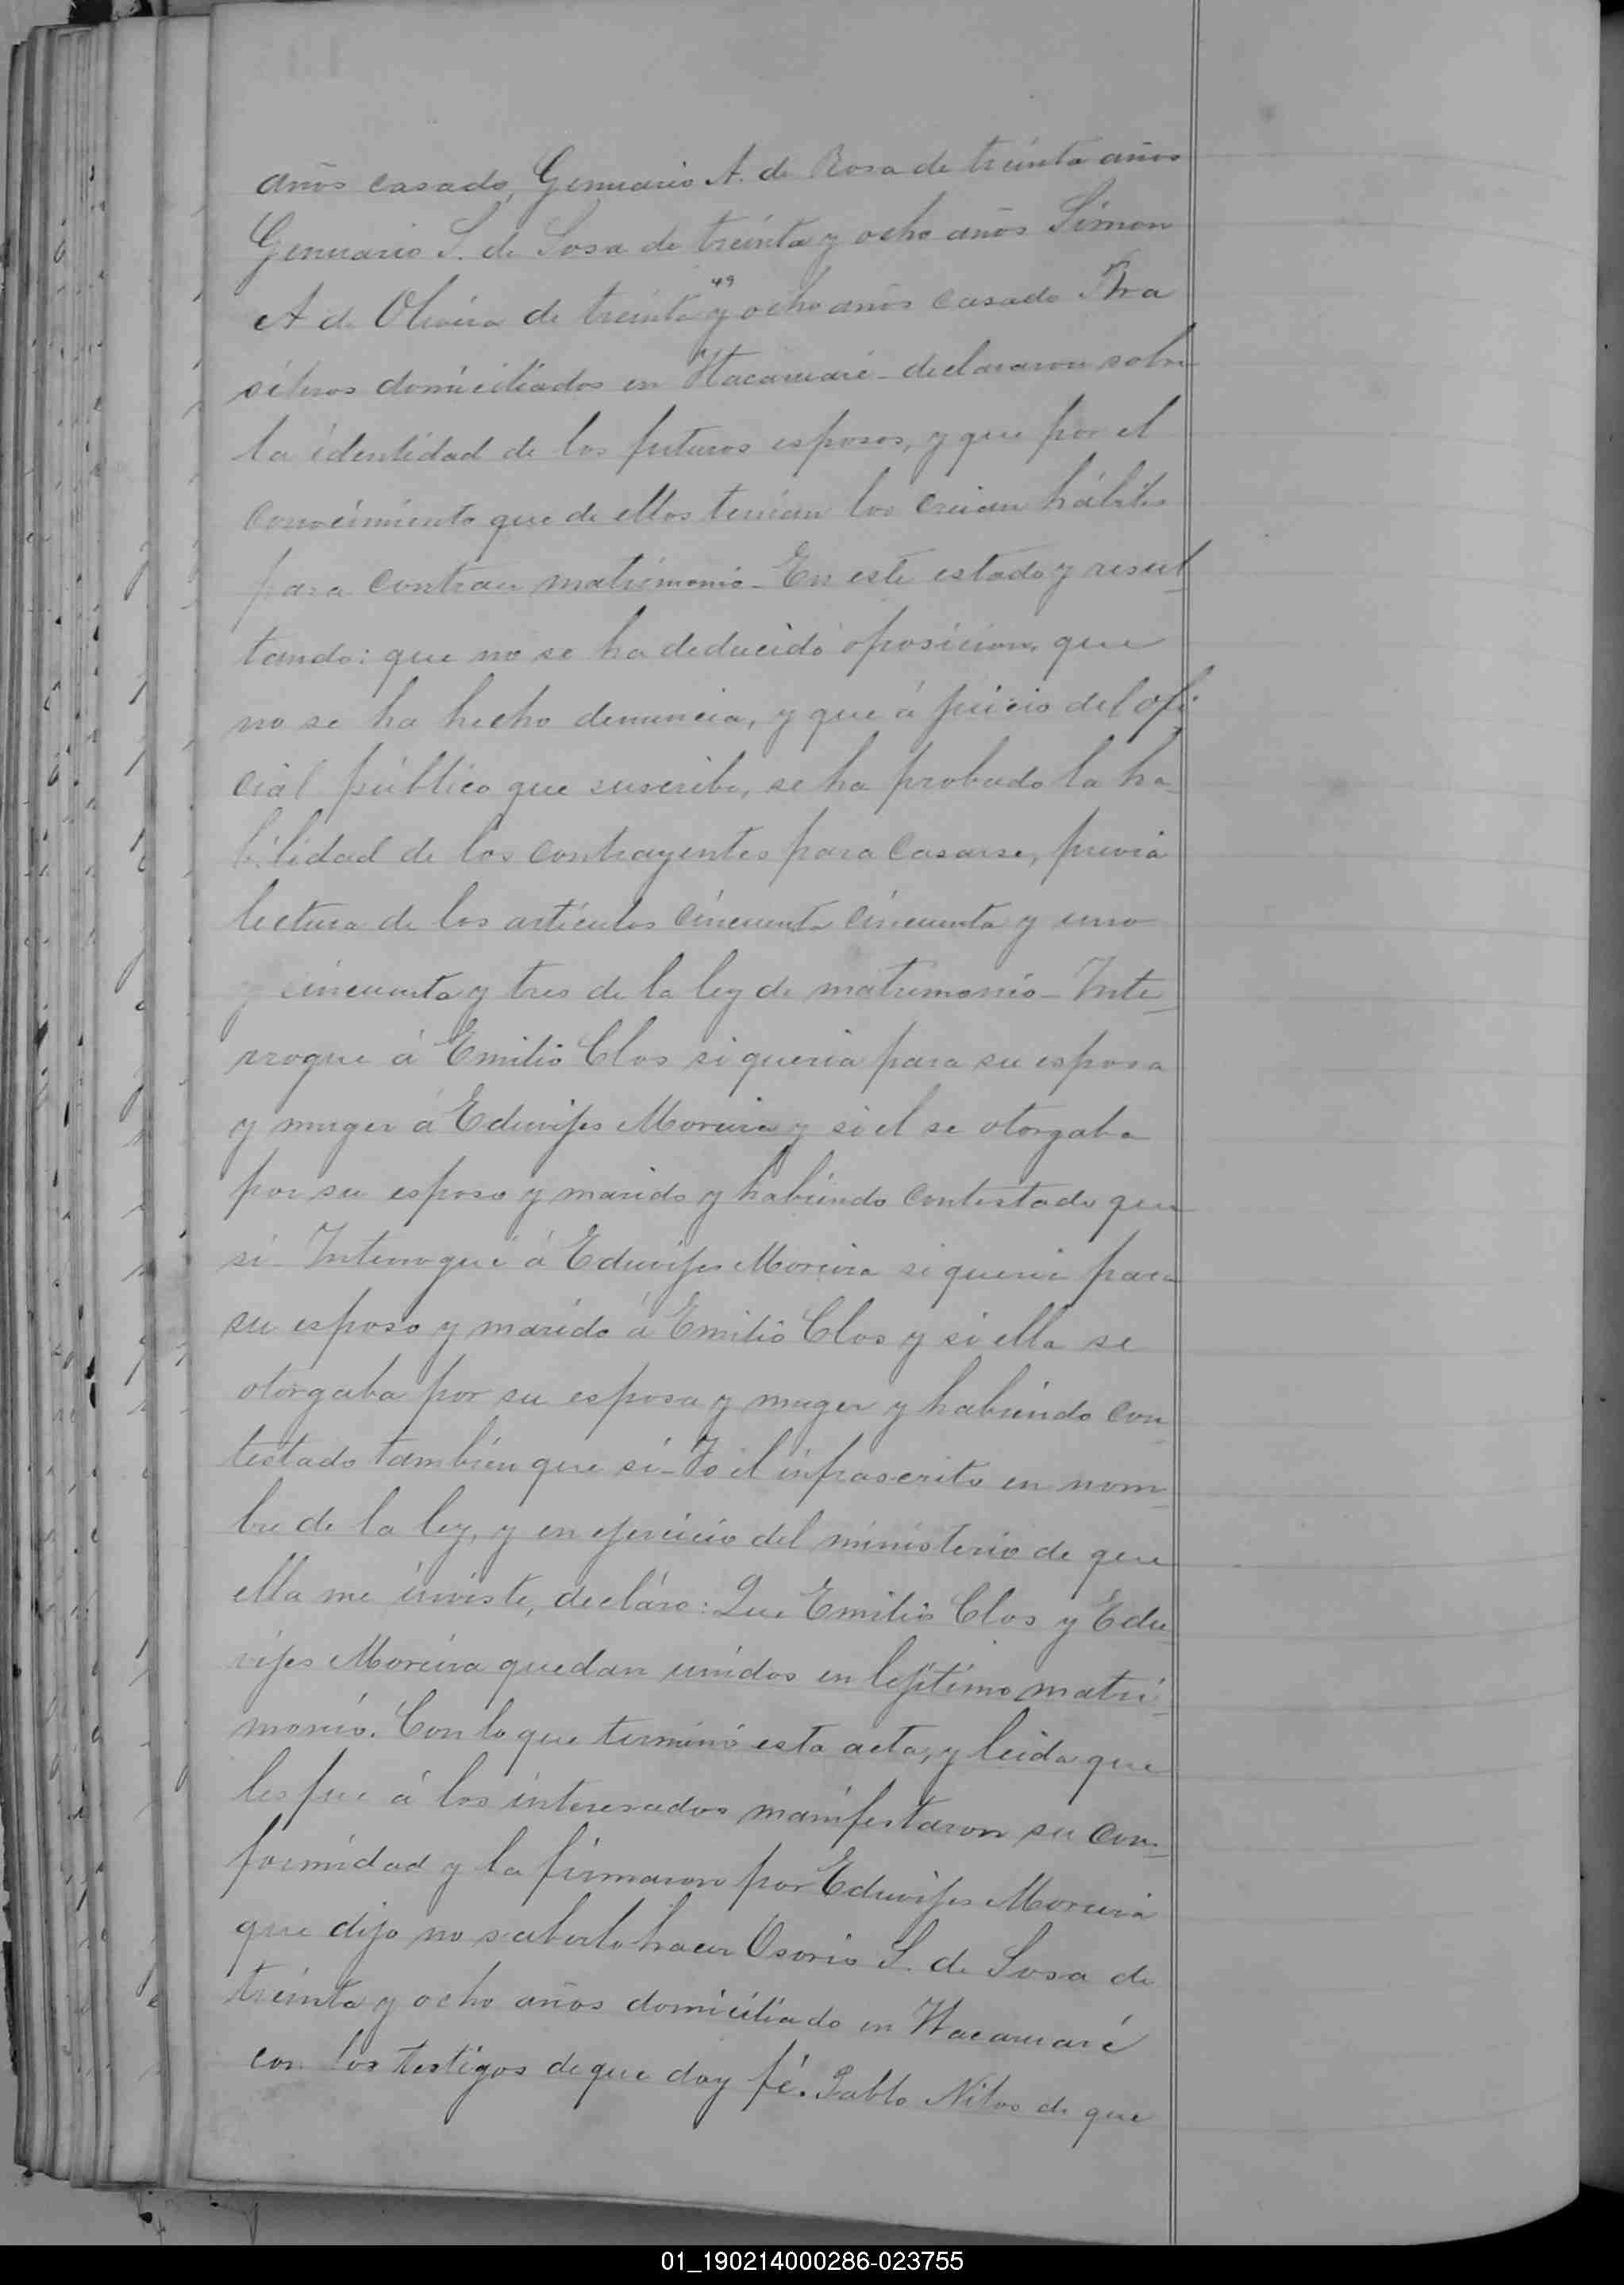 años casado, Genuario A. de Rosa de treinta años
Genuario S. de Sosa de treinta y ocho años Simon
49
A de Oliveira de treinta y ocho años casado Bra
sileros domiciliados en Itacaruaré - declararon sobre
la identidad de los futuros esposos, y que por el
conocimiento que de ellos tenian los creian hábiles
para contraer matrimonio - En este estado y resul
tando: que no se ha deducido oposicion, que
no se ha hecho denuncia, y que á juicio del ofi
cial público que suscribe, se ha probado la ha-
bilidad de los contrayentes para casarse, previa
lectura de los artículos cincuenta cincuenta y uno
y cincuenta y tres de la ley de matrimonio - Inte-
rrogue á Emilio Clos si queria para su esposa
y muger á Eduvijes Moreira y si el se otorgaba
por su esposo y marido y habiendo contestado que
si - Interrogué á Eduvijes Moreira si queria para
su esposo y marido á Emilio Clos y si ella se
otorgaba por su esposa y muger y habiendo con-
testado tambien que si - Yo el infrascrito en nom-
bre de la ley, y en ejercicio del ministerio de que
ella me inviste, decláro: Que Emilio Clos y Edu-
vijes Moreira quedan unidos en lejítimo matri-
monio. Con lo que terminó esta acta, y leida que
les fue á los interesados manifestaron su con-
formidad y la firmaron por Eduvijes Moreira
que dijo no saberlo hacer Osorio S. de Sosa de
treinta y ocho años domiciliado en Itacaruaré
con los testigos de que doy fé. Pablo Nilos de que
01_190214000286-023755